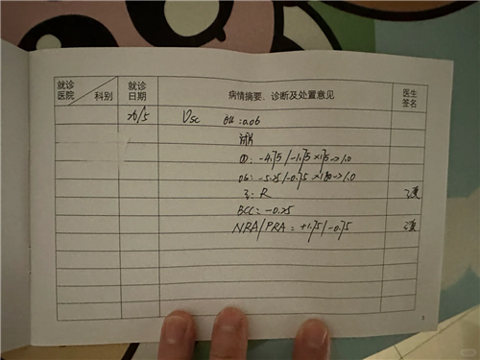 就诊医院 科别 就诊日期 病情摘要、诊断及处置意见 医生签名
26/5 Vsc 0.06
①: -4.75/-1.75×175→1.0
-5.25/-0.75×180→1.0
R
BCC: -0.25
NRA/PRA: +1.75/-0.75